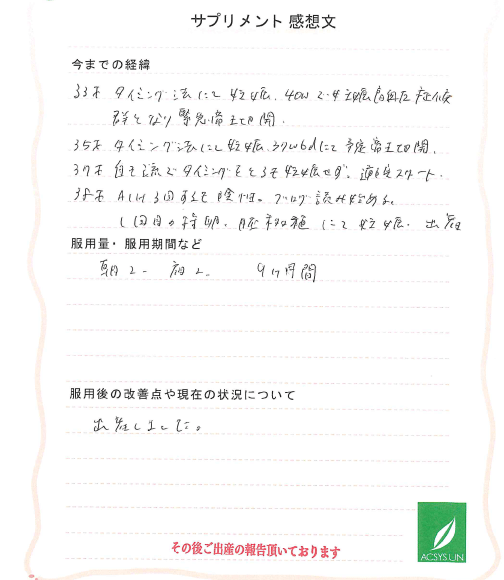 サプリメント 感想文
今までの経緯
33才 タイミング法にて妊娠、40wで妊娠高血圧症候
群となり緊急帝王切開。
35才 タイミング法にて妊娠、37w6dにて予定帝王切開。
37才 自己流でタイミングをとるも妊娠せず、通院スタート。
38才 AIH 3回するも陰性。ブログ読み始める。
1回目の採卵、胚移植にて妊娠、出産
服用量・服用期間など
朝2、夜2、 9ヶ月間
服用後の改善点や現在の状況について
出産しました。
その後ご出産の報告頂いております
ACSYS LIN